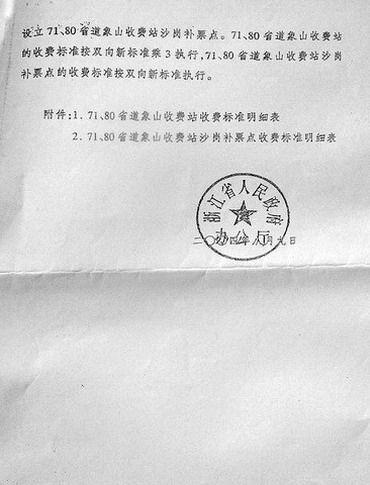 设立71、80省道象山收费站沙岗补票点。71、80省道象山收费站
的收费标准按双向新标准乘3执行,71、80省道象山收费站沙岗
补票点的收费标准按双向新标准执行。
附件:1.71、80省道象山收费站收费标准明细表
2.71、80省道象山收费站沙岗补票点收费标准明细表
浙江省人民政府
办公厅
二〇〇四年八月九日